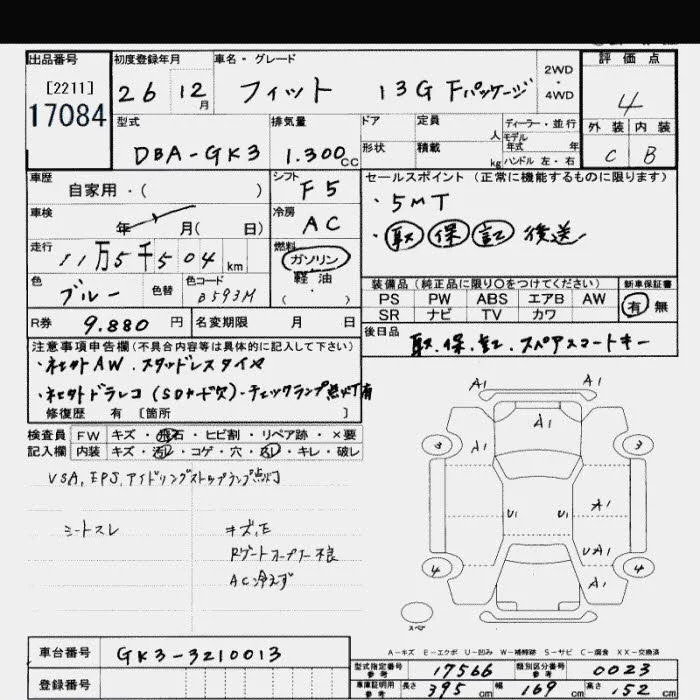 出品番号 初度登録年月 車名・グレード 評価点
[2211]
17084
26 12月 フィット 13G Fパッケージ 2WD・4WD 4
型式 排気量 ドア 定員 人 ディーラー・並行 外装 内装
DBA-GK3 1.300cc 形状 積載 kg モデル年式 年 ハンドル 左・右 C B
車歴 自家用・( ) シフト F5 セールスポイント(正常に機能するものに限ります)
・5MT
車検 年 月( 日) 冷房 AC
・取 保 記 後送
走行 11万5千504km 燃料 ガソリン・軽油・( )
色 ブルー 色替 色コード B593M
装備品(純正品に限り○をつけてください) 新車保証書
PS PW ABS エアB AW 有・無
SR ナビ TV カワ
R券 9.880円 名変期限 月 日
後日品 取.保.記.スペアスマートキー
注意事項申告欄(不具合内容等は具体的に記入して下さい)
・ネセサトAW.スタッドレスタイヤ
・ネセサトドラレコ(SDカード欠)・チェックランプ点灯有
修復歴 有[箇所 ]
検査員 FW キズ・飛石・ヒビ割・リペア跡・×要
記入欄 内装 キズ・汚レ・コゲ・穴・スレ・キレ・破レ
VSA,EPS,アイドリングストップランプ点灯
シートスレ キズ,E
Rゲートオープナー不良
AC冷えず
A1 A1
A1
3 A1 3
A1
U1 U1
UA1
4 A1 4
スペア
A-キズ E-エクボ U-凹み W-補修跡 S-サビ C-腐食 XX-交換済
車台番号 GK3-3210013
型式指定番号 参考 17566 類別区分番号 参考 0023
登録番号
車庫証明用 参考 長さ 395cm 幅 169cm 高さ 152cm